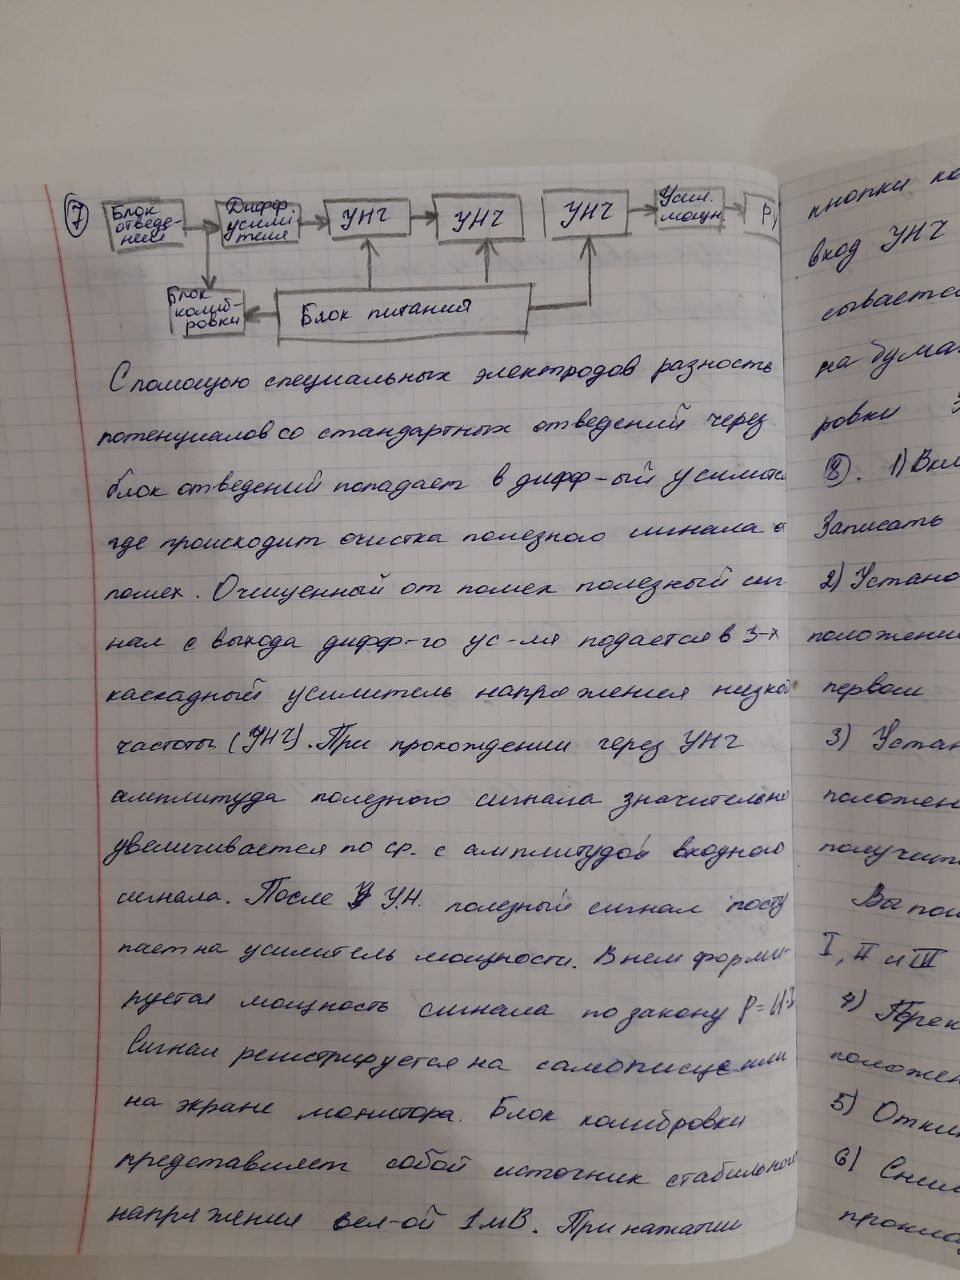 7
Блок
отведе-
ний
Дифф
усили
теля
УНЧ
УНЧ
УНЧ
Усил.
мощн.
Блок
колиб-
ровки
Блок питания
С помощью специальных электродов разность
потенциалов со стандартных отведений через
блок отведений попадает в дифф-ый усилите
где происходит очистка полезного сигнала о
помех. Очищенный от помех полезный сиг
нал с выхода дифф-го ус-ля подается в 3-х
каскадный усилитель напряжения низкой
частоты (УНЧ). При прохождении через УНЧ
амплитуда полезного сигнала значительно
увеличивается по ср. с амплитудой входного
сигнала. После УН. полезный сигнал посту
пает на усилитель мощности. В нем форми
руется мощность сигнала по закону P=U·I
Сигнал регистрируется на самописце или
на экране монитора. Блок колибровки
представляет собой источник стабильного
напряжения вел-ой 1мВ. При нажатии
кнопки ка
вход УНЧ
сывается
на бума
ровки
8. 1) Вкл
Записать
2) Устано
положени
первом
3) Устан
положен
получит
I, II и III
4)
положен
5) Откл
6)